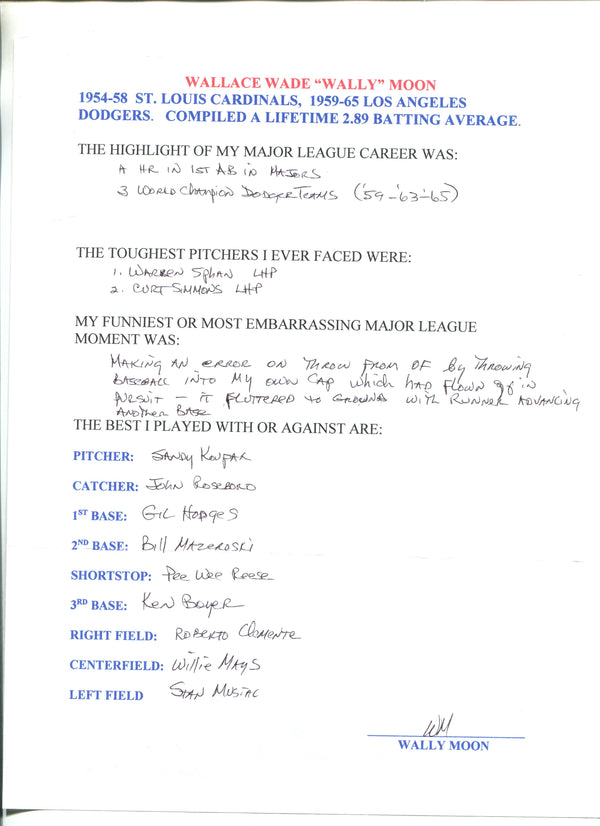 WALLACE WADE “WALLY” MOON
1954-58 ST. LOUIS CARDINALS, 1959-65 LOS ANGELES
DODGERS. COMPILED A LIFETIME 2.89 BATTING AVERAGE.
THE HIGHLIGHT OF MY MAJOR LEAGUE CAREER WAS:
A HR IN 1ST AB IN MAJORS
3 WORLD CHAMPION DODGER TEAMS ('59-'63-'65)
THE TOUGHEST PITCHERS I EVER FACED WERE:
1. WARREN SPHAN LHP
2. CURT SIMMONS LHP
MY FUNNIEST OR MOST EMBARRASSING MAJOR LEAGUE
MOMENT WAS:
MAKING AN ERROR ON THROW FROM OF by THROWING
BASEBALL INTO MY OWN CAP WHICH HAD FLOWN off IN
PURSUIT - IT FLUTTERED to GROUND WITH RUNNER ADVANCING
ANOTHER BASE
THE BEST I PLAYED WITH OR AGAINST ARE:
PITCHER: SANDY KOUFAX
CATCHER: JOHN ROSEBORO
1ST BASE: GIL HODGES
2ND BASE: Bill MAZEROSKI
SHORTSTOP: Pee Wee Reese
3RD BASE: KEN BOYER
RIGHT FIELD: ROBERTO Clemente
CENTERFIELD: Willie MAYS
LEFT FIELD STAN MUSIAL
WM
WALLY MOON